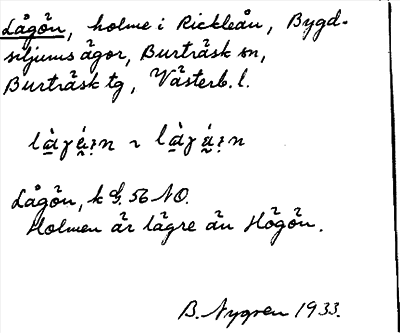 Lågön, holme i Rickleån, Bygd-
siljums ägor, Burträsk sn,
Burträsk tg, Västerb. l.
Lågön, k G. 56 NO.
Holmen är lägre än Högön.
B. Nygren 1933.